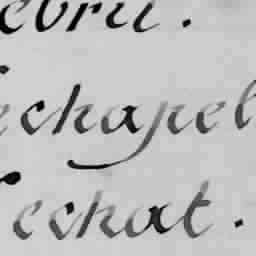 ebril.
echapel
echat.